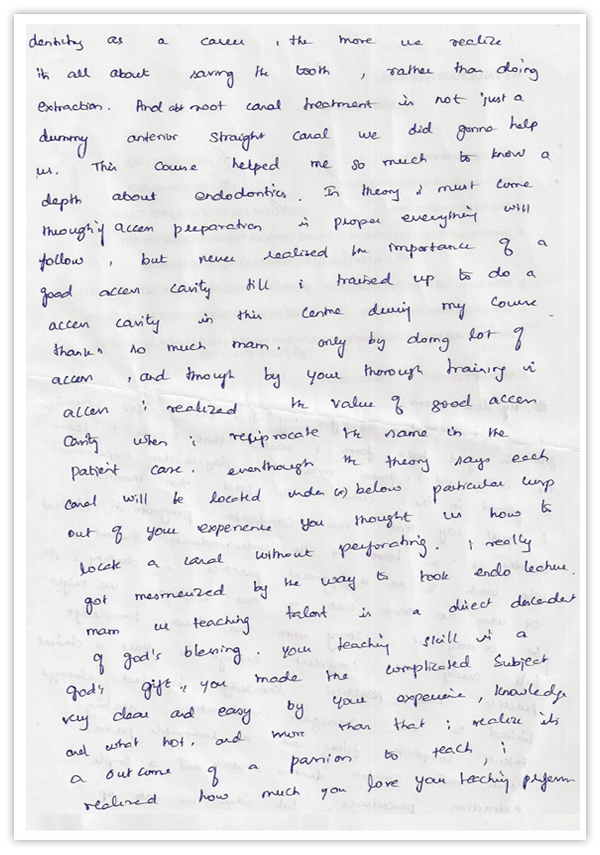 dentistry as a career , the more we realize
its all about saving the tooth , rather than doing
extraction. And root canal treatment is not just a
dummy anterior straight canal we did gonna help
us. This Course helped me so much to know a
depth about endodontics. In theory i must come
through'y access preparation is proper everything will
follow , but never realised the importance of a
good access cavity till i trained up to do a
access cavity in this centre during my course
thanks so much mam. only by doing lot of
access , and through by your thorough training in
access i realized the value of good access
cavity when i repiprocate the same in the
patient case. eventhough the theory says each
canal will be located under (or) below particular cusp
out of your experience you thought us how to
locate a canal without perforating. i really
got mesmerized by the way to took endo lecture.
mam ur teaching talent is a direct descendent
of god's blessing. your teaching skill is a
god's gift, you made the complicated Subject
very clear and easy by your experience, knowledge
and what not. and more than that i realize its
a outcome of a passion to teach, i
realized how much you love your teaching